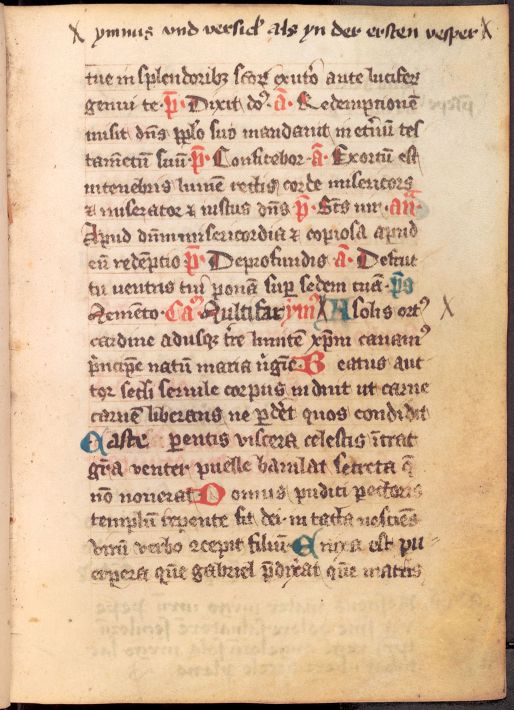 X ymnus vnd versick als yn der ersten vesper X
tue in splendoribꝫ scōꝝ ex vtō ante lucifeꝝ
genui te · p̄ · Dixit do⁹ · a̅ · Redemptionē
misit dn̄s pplo suo mandauit in etnū tes
tamētū suū · p̄ · Confitebor · a̅ · Exortū est
in tenebris lumē rectis corde misericors
⁊ miserator ⁊ iustus dn̄s p̄ · Btūs uir · an̄
Apud dn̄m misericordia ⁊ copiosa apud
eū redēptio p̄ · De profundis · a̅ · De fruc
tu ventris tui ponā suꝑ sedem tuā · p̄s
Memēto · Ca⁹ Multifar ym⁹ X A solis ort⁹ X
cardine adusqꝫ t̄re limitē xp̄m canam⁹
p̄ncipē natū maria ṽgīe B eatus auc
tor secli seruile corpus induit ut carne
carnē liberans ne p̄det quos condidit
Caste parentis viscera celestis ītrat
gr̄a venter puelle baiulat secreta q̄
nō nouerat D omus pudici pectoris
templū repente fit dei intacta nesciēs
virū verbo ↄcepit filiū E nixa est pu
erpera quē gabriel p̄dixat quē matris